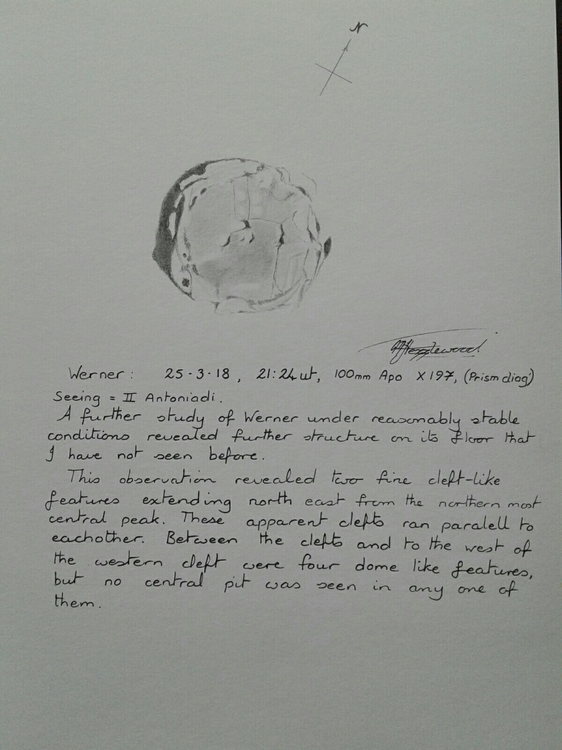 N
Werner: 25-3-18, 21:24ut, 100mm Apo X197, (Prism diag)
Seeing = II Antoniadi.
A further study of Werner under reasonably stable
conditions revealed further structure on its floor that
I have not seen before.
This observation revealed two fine cleft-like
features extending north east from the northern most
central peak. These apparent clefts ran paralell to
eachother. Between the clefts and to the west of
the western cleft were four dome like features,
but no central pit was seen in any one of
them.